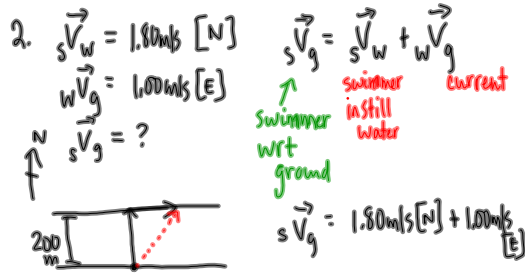 2. ₛV⃗w = 1.80m/s [N]
wV⃗g = 1.00m/s [E]
ₛV⃗g = ?
N
200
m
ₛV⃗g = ₛV⃗w + wV⃗g
swimmer
wrt
ground
swimmer
in still
water
current
ₛV⃗g = 1.80m/s[N] + 1.00m/s
[E]